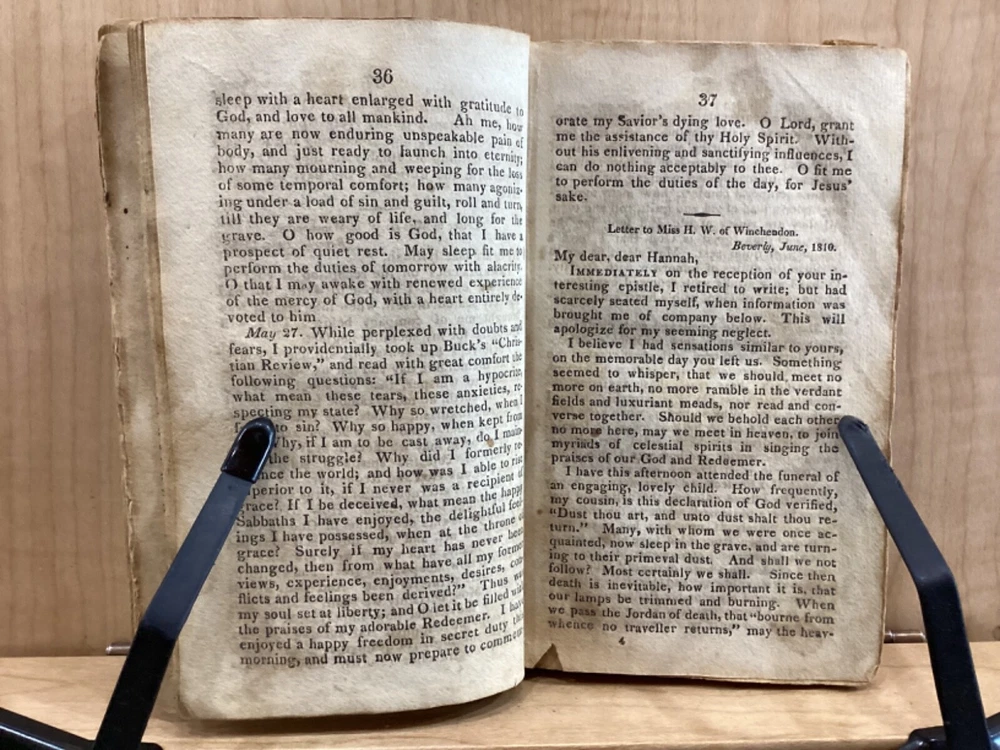 36
sleep with a heart enlarged with gratitude to
God, and love to all mankind. Ah me, how
many are now enduring unspeakable pain of
body, and just ready to launch into eternity;
how many mourning and weeping for the loss
of some temporal comfort; how many agoniz-
ing under a load of sin and guilt, roll and turn,
till they are weary of life, and long for the
grave. O how good is God, that I have a
prospect of quiet rest. May sleep fit me to
perform the duties of tomorrow with alacrity.
O that I may awake with renewed experience
of the mercy of God, with a heart entirely de-
voted to him
May 27. While perplexed with doubts and
fears, I providentially took up Buck's "Chris-
tian Review," and read with great comfort the
following questions: "If I am a hypocrite,
what mean these tears, these anxieties, re-
specting my state? Why so wretched, when I
to sin? Why so happy, when kept from
Why, if I am to be cast away, do I main-
the struggle? Why did I formerly re-
the world; and how was I able to rise
superior to it, if I never was a recipient of
grace? If I be deceived, what mean the happy
Sabbaths I have enjoyed, the delightful feel-
ings I have possessed, when at the throne of
grace? Surely if my heart has never been
changed, then from what have all my former
views, experience, enjoyments, desires, con-
flicts and feelings been derived?" Thus was
my soul set at liberty; and O let it be filled with
the praises of my adorable Redeemer. I have
enjoyed a happy freedom in secret duty this
morning, and must now prepare to commem-
37
orate my Savior's dying love. O Lord, grant
me the assistance of thy Holy Spirit. With-
out his enlivening and sanctifying influences, I
can do nothing acceptably to thee. O fit me
to perform the duties of the day, for Jesus'
sake.
Letter to Miss H. W. of Winchendon.
Beverly, June, 1810.
My dear, dear Hannah,
IMMEDIATELY on the reception of your in-
teresting epistle, I retired to write; but had
scarcely seated myself, when information was
brought me of company below. This will
apologize for my seeming neglect.
I believe I had sensations similar to yours,
on the memorable day you left us. Something
seemed to whisper, that we should meet no
more on earth, no more ramble in the verdant
fields and luxuriant meads, nor read and con-
verse together. Should we behold each other
no more here, may we meet in heaven, to join
myriads of celestial spirits in singing the
praises of our God and Redeemer.
I have this afternoon attended the funeral of
an engaging, lovely child. How frequently,
my cousin, is this declaration of God verified,
"Dust thou art, and unto dust shalt thou re-
turn." Many, with whom we were once ac-
quainted, now sleep in the grave, and are turn-
ing to their primeval dust. And shall we not
follow? Most certainly we shall. Since then
death is inevitable, how important it is, that
our lamps be trimmed and burning. When
we pass the Jordan of death, that "bourne from
whence no traveller returns," may the heav-
4